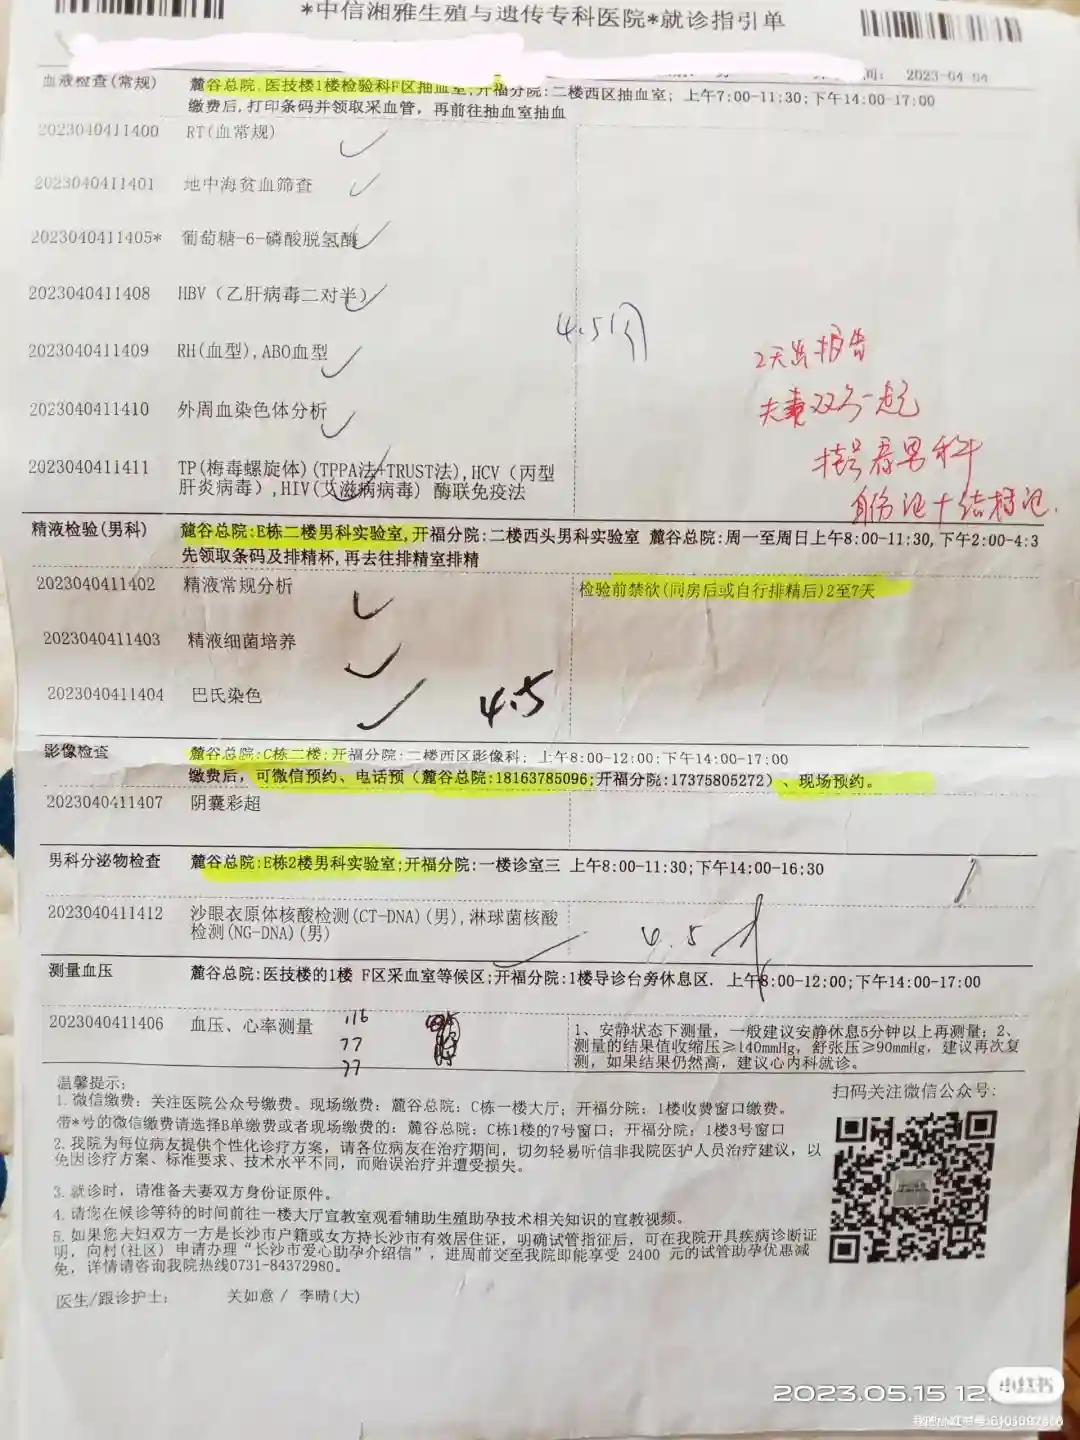 *中信湘雅生殖与遗传专科医院*就诊指引单
间: 2023-04-04
血液检查(常规) 麓谷总院.医技楼1楼检验科F区抽血室;开福分院:二楼西区抽血室; 上午7:00-11:30;下午14:00-17:00
缴费后,打印条码并领取采血管, 再前往抽血室抽血
2023040411400 RT(血常规)
2023040411401 地中海贫血筛查
2023040411405* 葡萄糖-6-磷酸脱氢酶
2023040411408 HBV(乙肝病毒二对半)
4.5
2023040411409 RH(血型),ABO血型
2天出报告
2023040411410 外周血染色体分析
夫妻双方一起
挂号看男科
2023040411411 TP(梅毒螺旋体)(TPPA法+TRUST法),HCV(丙型
肝炎病毒),HIV(艾滋病病毒) 酶联免疫法
身份证+结婚证.
精液检验(男科) 麓谷总院:E栋二楼男科实验室,开福分院:二楼西头男科实验室 麓谷总院:周一至周日上午8:00-11:30,下午2:00-4:3
先领取条码及排精杯,再去往排精室排精
2023040411402 精液常规分析 检验前禁欲(同房后或自行排精后)2至7天
2023040411403 精液细菌培养
2023040411404 巴氏染色 4.5
影像检查 麓谷总院:C栋二楼;开福分院:二楼西区影像科; 上午8:00-12:00;下午14:00-17:00
缴费后, 可微信预约、电话预(麓谷总院:18163785096;开福分院:17375805272)、现场预约。
2023040411407 阴囊彩超
男科分泌物检查 麓谷总院:E栋2楼男科实验室;开福分院:一楼诊室三 上午8:00-11:30;下午14:00-16:30
2023040411412 沙眼衣原体核酸检测(CT-DNA)(男),淋球菌核酸
检测(NG-DNA)(男)
4.5
测量血压 麓谷总院:医技楼的1楼 F区采血室等候区;开福分院:1楼导诊台旁休息区. 上午8:00-12:00;下午14:00-17:00
2023040411406 血压、心率测量 116
77
77
1、安静状态下测量, 一般建议安静休息5分钟以上再测量; 2、
测量的结果值收缩压≥140mmHg, 舒张压≥90mmHg, 建议再次复
测, 如果结果仍然高, 建议心内科就诊。
温馨提示:
扫码关注微信公众号:
1.微信缴费: 关注医院公众号缴费。现场缴费: 麓谷总院: C栋一楼大厅; 开福分院: 1楼收费窗口缴费。
带*号的微信缴费请选择B单缴费或者现场缴费的: 麓谷总院: C栋1楼的7号窗口; 开福分院: 1楼3号窗口
2.我院为每位病友提供个性化诊疗方案, 请各位病友在治疗期间, 切勿轻易听信非我院医护人员治疗建议, 以
免因诊疗方案、标准要求、技术水平不同, 而贻误治疗并遭受损失。
3.就诊时, 请准备夫妻双方身份证原件。
4.请您在候诊等待的时间前往一楼大厅宣教室观看辅助生殖助孕技术相关知识的宣教视频。
5.如果您夫妇双方一方是长沙市户籍或女方持长沙市有效居住证, 明确试管指征后, 可在我院开具疾病诊断证
明, 向村(社区) 申请办理“长沙市爱心助孕介绍信”, 进周前交至我院即能享受 2400 元的试管助孕优惠减
免, 详情请咨询我院热线0731-84372980。
医生/跟诊护士: 关如意 / 李晴(大)
2023.05.15 12:
小红书